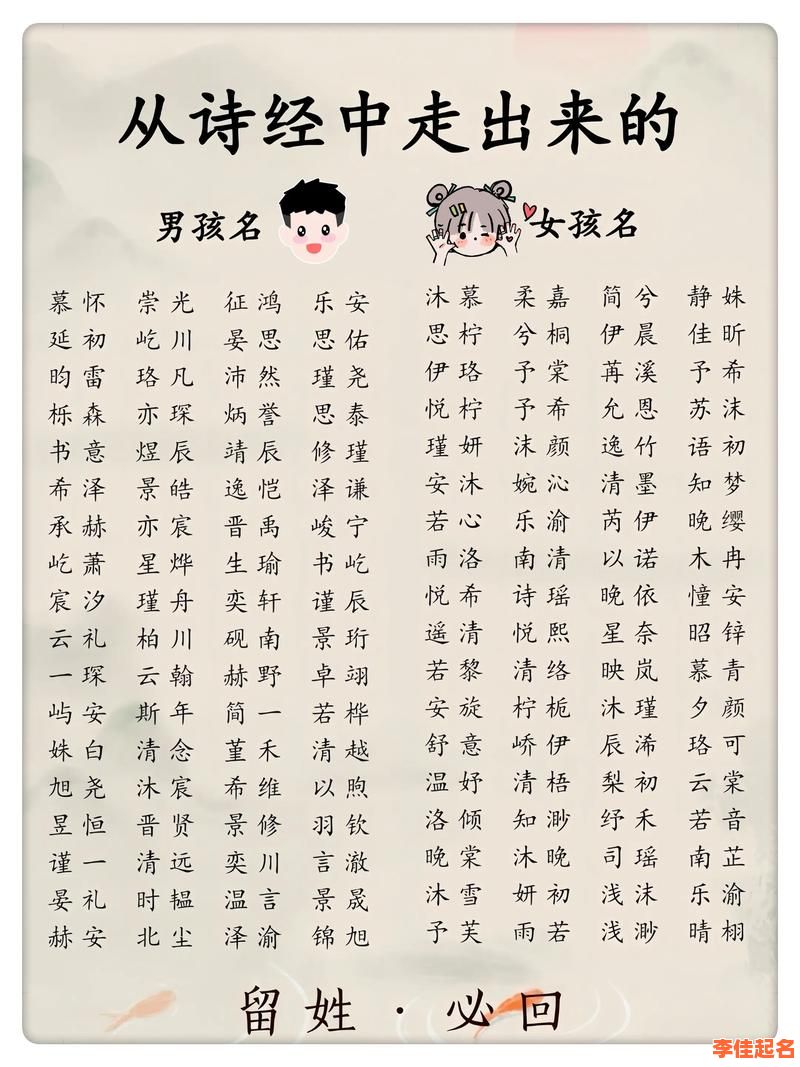 从诗经中走出来的
男孩名 女孩名
慕怀 崇光 征鸿 乐安 沐慕 柔嘉 简兮 静姝
延初 屹川 晏思 思佑 思柠 兮桐 伊晨 佳昕
昀雷 珞凡 沛然 瑾尧 伊珞 予棠 苒溪 予希
栎森 亦琛 炳誉 思泰 悦柠 予希 允恩 苏沫
书意 煜辰 靖辰 修瑾 瑾妍 沫颜 逸竹 语初
希泽 景皓 逸恺 泽谦 安沐 婉沁 清墨 知梦
承赫 亦宸 晋禹 峻宁 若心 乐渝 芮伊 晚缨
屹萧 星烨 生瑜 书屹 雨洛 南清 以诺 木冉
宸汐 瑾舟 奕轩 谨辰 悦希 诗瑶 晚依 憧安
云礼 柏川 砚南 景珩 遥清 悦熙 星奈 昭锌
一琛 云翰 赫野 卓翊 若黎 清络 映岚 慕青
屿安 斯年 简一 若桦 安旋 柠栀 沐瑾 夕颜
姝白 清念 堇禾 清越 舒意 峤伊 辰浠 珞可
旭尧 沐宸 希维 以煦 温妤 清梧 梨初 云棠
昱恒 晋贤 景修 羽钦 洛倾 知渺 纾禾 若音
谨一 清远 奕川 言澈 晚棠 沐晚 司瑶 南芷
晏礼 时韫 温言 景晟 沐雪 妍初 浅沫 乐渝
赫安 北尘 泽渝 锦旭 予芙 雨若 浅渺 晴栩
留姓·必回
李佳起名